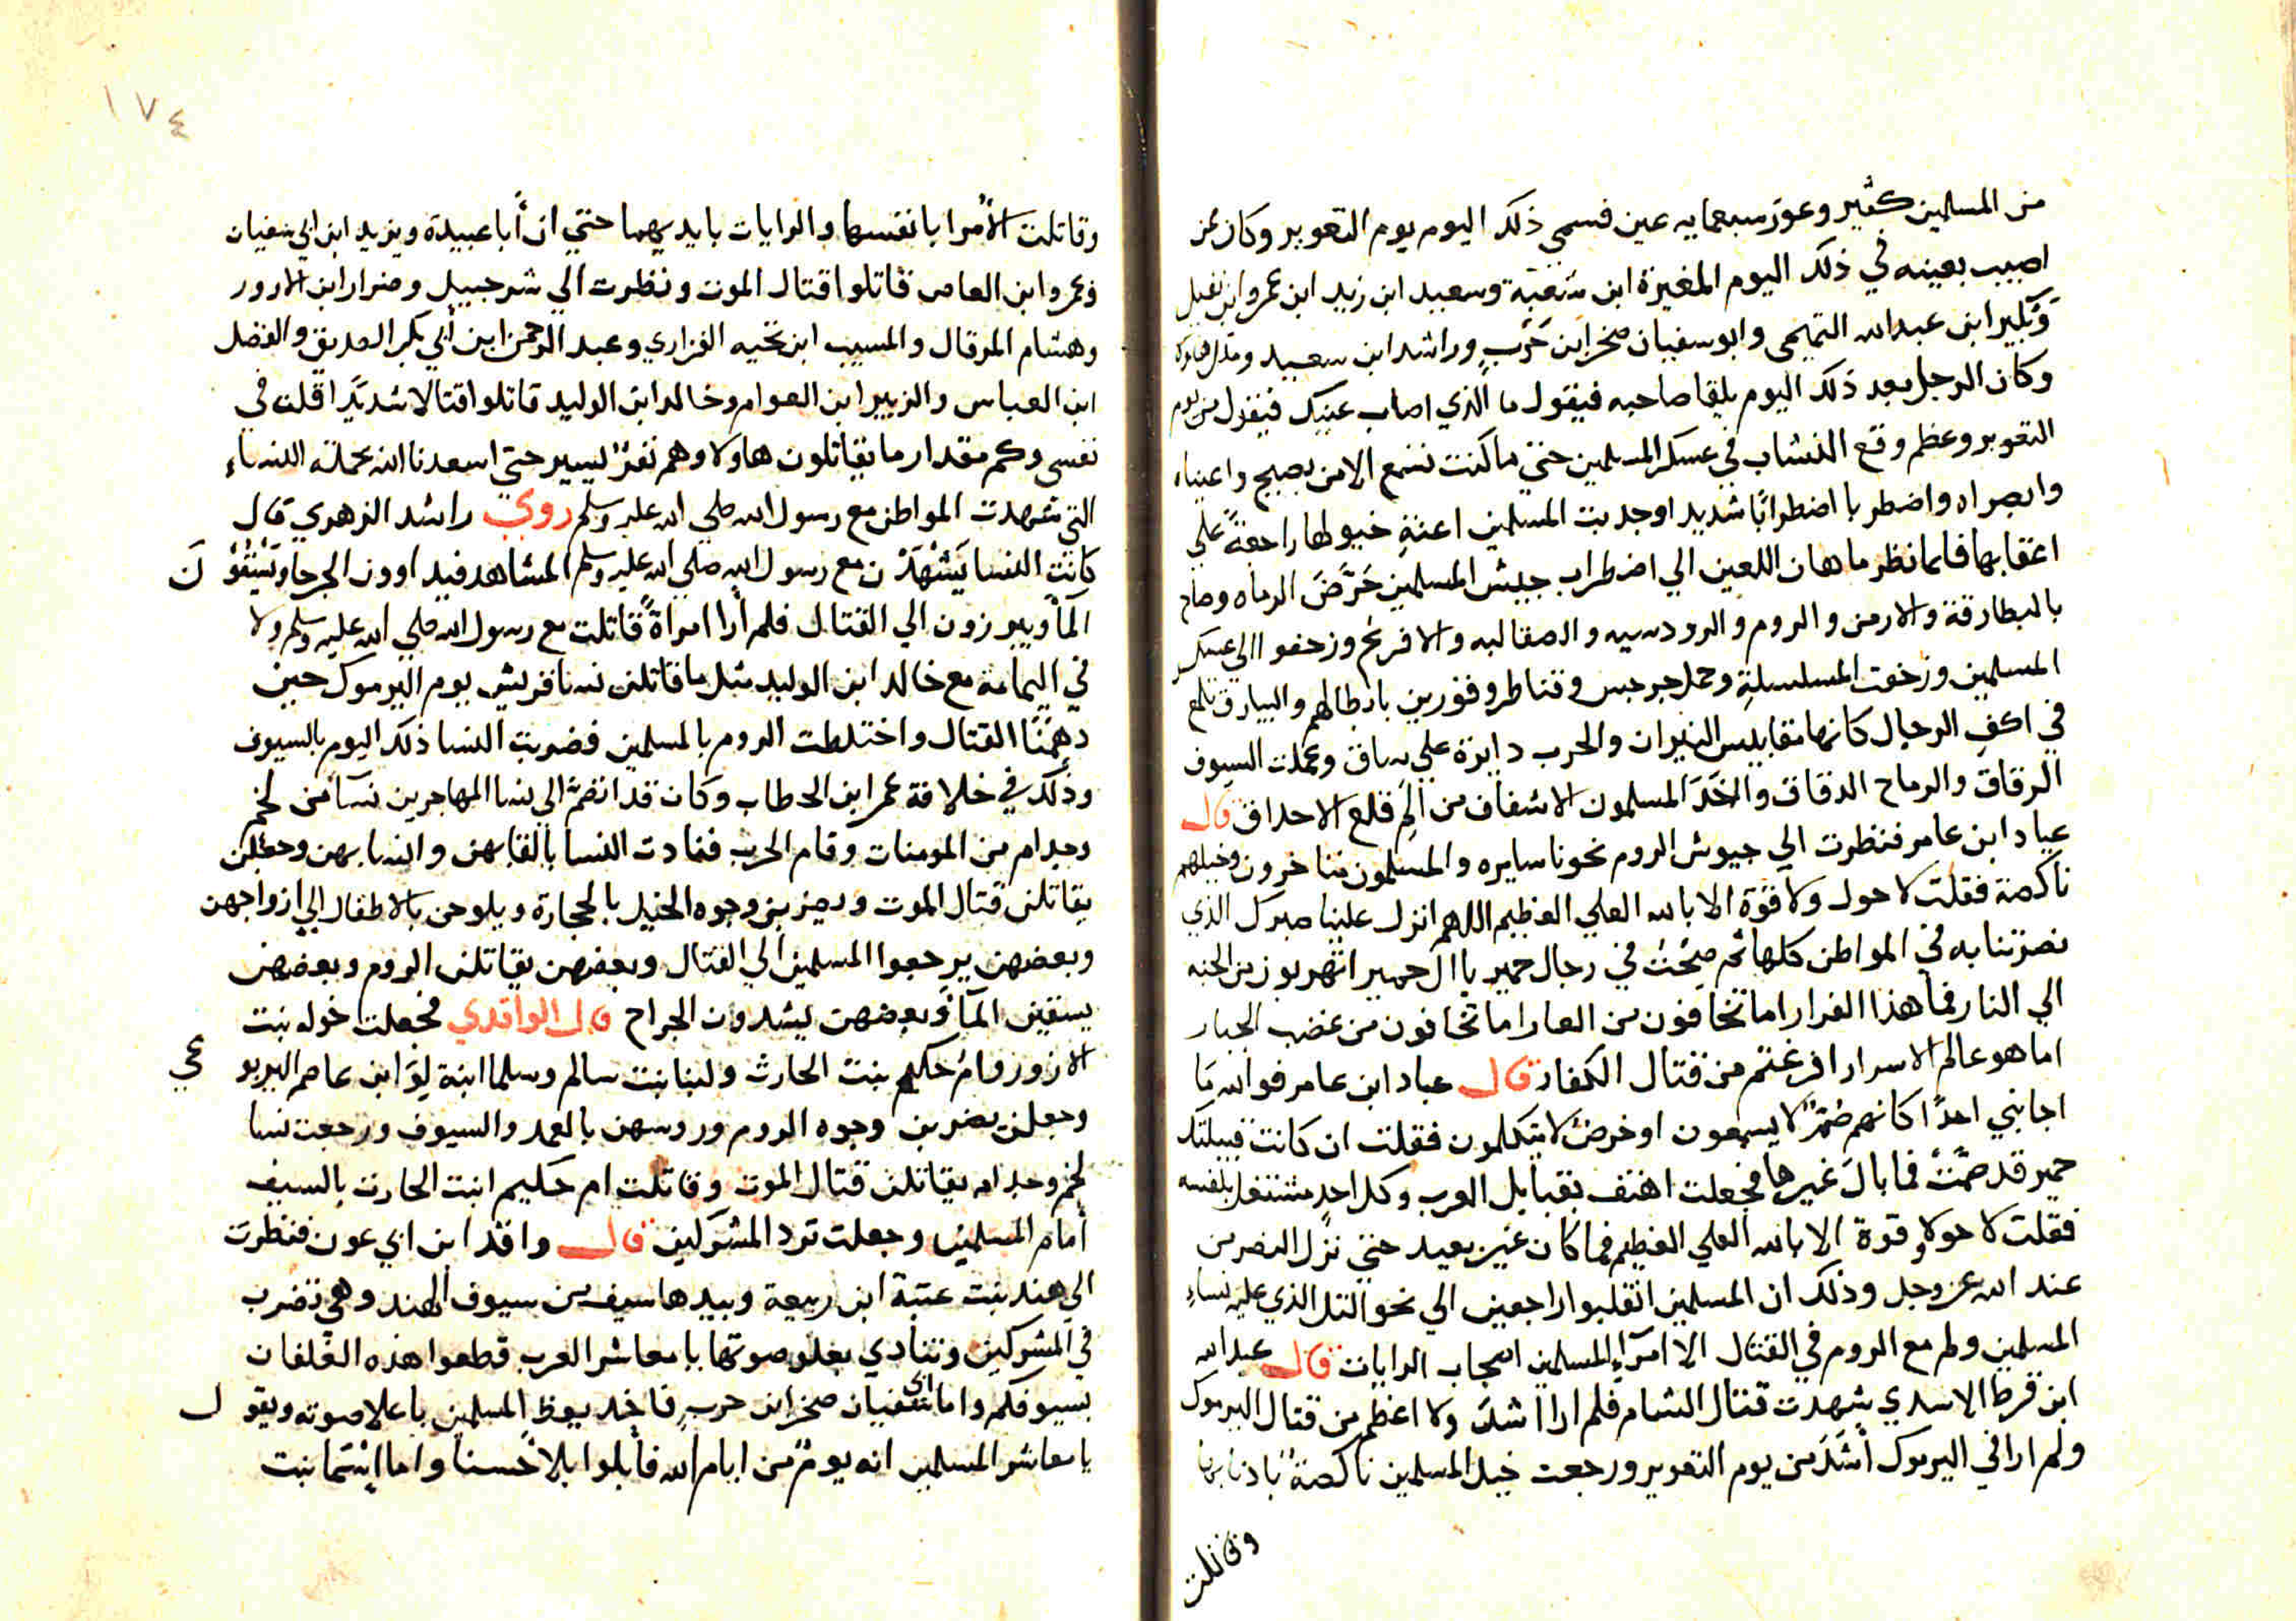 من المسلمين كثير وعور سبعمايه عين فسمي ذلك اليوم يوم التعوير وكان ممن
اصيب بعينه في ذلك اليوم المغيرة ابن شعبة وسعيد ابن زيد ابن عمرو ابن نفيل
وبكير ابن عبدالله التميمي وابو سفيان صخر ابن حَرْبٍ وراشد ابن سعيد
وكان الرجل بعد ذلك اليوم يلقا صاحبه فيقول ما الذي اصاب عينيك فيقول من يوم
التعوير وعظم وقع النشاب في عسكر المسلمين حتي ما كنت تسمع الا من يصيح واعيناه
وابصراه واضطربا اضطرابًا شديد اوجدبت المسلمين اعنةِ خيولها راجعةً علي
اعقابها فلما نظر ماهان اللعين الي اضطراب جيش المسلمين حَرَّضَ الرماه وصاح
بالبطارقة والارمن والروم والرودسيه والصقالبه والافرنج وزحفوا الي عسكر
المسلمين وزحفت المسلسلةِ وحمل جرجيس وقناطر وفورين بابطالهم والبيارق تلمع
في اكفِ الرجال كانها مقابيس النيران والحرب دايرة علي ساق وعملت السيوف
الرقاق والرماح الدقاق والخَدَ المسلمون الاشفاف من الَمِ قلع الاحداق قال
عباد ابن عامر فنظرت الي جيوش الروم نحونا سايره والمسلمون متاخرون وخيلهم
ناكصة فقلت لا حول ولا قوة الا بالله العلي العظيم اللهم انزل علينا صبرك الذي
نصرتنا به في المواطن كلها ثم صِحْتُ في رجال حمير يا ال حمير اتهربون من الجنه
الي النار فما هذا الفرار اما تخافون من العار اما تخافون من غضب الجبار
اما هو عالم الاسرار افرغتم من قتال الكفار قال عباد ابن عامر فوالله ما
اجابني احدًا كانهم صُمٌّ لا يسمعون او خرصٌ لا يتكلمون فقلت ان كانت قبيلتك
حمير قد صَمَّتْ فما بالَ غيرها فجعلت اهتف بقبايل العرب وكل احدٍ مشتغل بنفسه
فقلت لا حولا وقوة الا بالله العلي العظيم فما كان غير بعيد حتي نزل النصر من
عند الله عز وجل وذلك ان المسلمين انقلبوا راجعين الي نحو التل الذي عليه نساءِ
المسلمين ولم مع الروم في القتال الا امرآءِ المسلمين اصحاب الرايات قال عبدالله
ابن قرط الاسدي شهدت قتال الشام فلم ارا اشدَّ ولا اعظم من قتال اليرموك
ولم ارا في اليرموك أشَدَ من يوم التعوير ورجعت خيل المسلمين ناكصةً باذنابها
وقاتلت
١٧٤
وقاتلت الأُمرا بانفسها والرايات بايديهما حتي ان أبا عبيدة ويزيد ابن ابي سفيان
وعمرو ابن العاص قاتلوا قتال الموت ونظرت الي شرحبيل وضرار ابن الازور
وهشام المرقال والمسيب ابن نحيه الفزاري وعبد الرحمن ابن أبي بكر الصديق والفضل
ابن العباس والزبير ابن العوام وخالد ابن الوليد قاتلوا قتالا شديدًا قلت في
نفسي وكم مقدار ما يقاتلون هاولا وهم نفرٌ يسير حتي اسعدنا الله بحملة النساءِ
التي شهدت المواطن مع رسول الله صلي الله عليه وسلم روي راشد الزهري قال
كانت النسا يَشْهَدْن مع رسول الله صلي الله عليه وسلم المشاهد فيداوون الجرحا ويَسْقُوْنَ
المأ ويبرزون الي القتال فلم أرا امراةً قاتلت مع رسول الله صلي الله عليه وسلم ولا
في اليمامة مع خالد ابن الوليد مثل ما قاتلن نسا قريش يوم اليرموك حين
دهمنا القتال واختلطت الروم بالمسلمين فضربت النسا ذلك اليوم بالسيوف
وذلك في خلافة عمر ابن الخطاب وكان قد انضمَّ الي نسا المهاجرين نسآ من لخم
وجدام من المومنات وقام الحرب فنادت النسا بالقابهن وانسابهن وجعلن
يقاتلن قتال الموت ويضربن وجوه الخيل بالحجارة ويلوحن بالاطفال الي ازواجهن
وبعضهن يرجعوا المسلمين الي القتال وبعضهن يقاتلن الروم وبعضهن
يسقين المآ وبعضهن يشدون الجراح قال الواقدي فجعلت خوله بنت
الازور وام حكيم بنت الحارث ولبنا بنت سالم وسلما ابنة لوَ ابن عاصم اليربوعي
وجعلن يضربن وجوه الروم وروسهن بالعمد والسيوف ورجعت نسا
لخم وجدام يقاتلن قتال الموت وقاتلت ام حكيم ابنت الحارث بالسيف
أمام المسلمين وجعلت ترد المشركين قال واقد ابن ابي عون فنظرت
الي هند بنت عتبة ابن ربيعة وبيدها سيف من سيوف الهند وهي تضرب
في المشركين وتنادي بعلو صوتها يا معاشر العرب قطعوا هذه الغلفان
بسيوفكم واما ابي سفيان صخر ابن حربٍ فاخد يوعظ المسلمين باعلا صوته ويقول
يا معاشر المسلمين انه يومٌ من ايام الله فأبلوا بلاً حسنا واما إسْمَا بنت